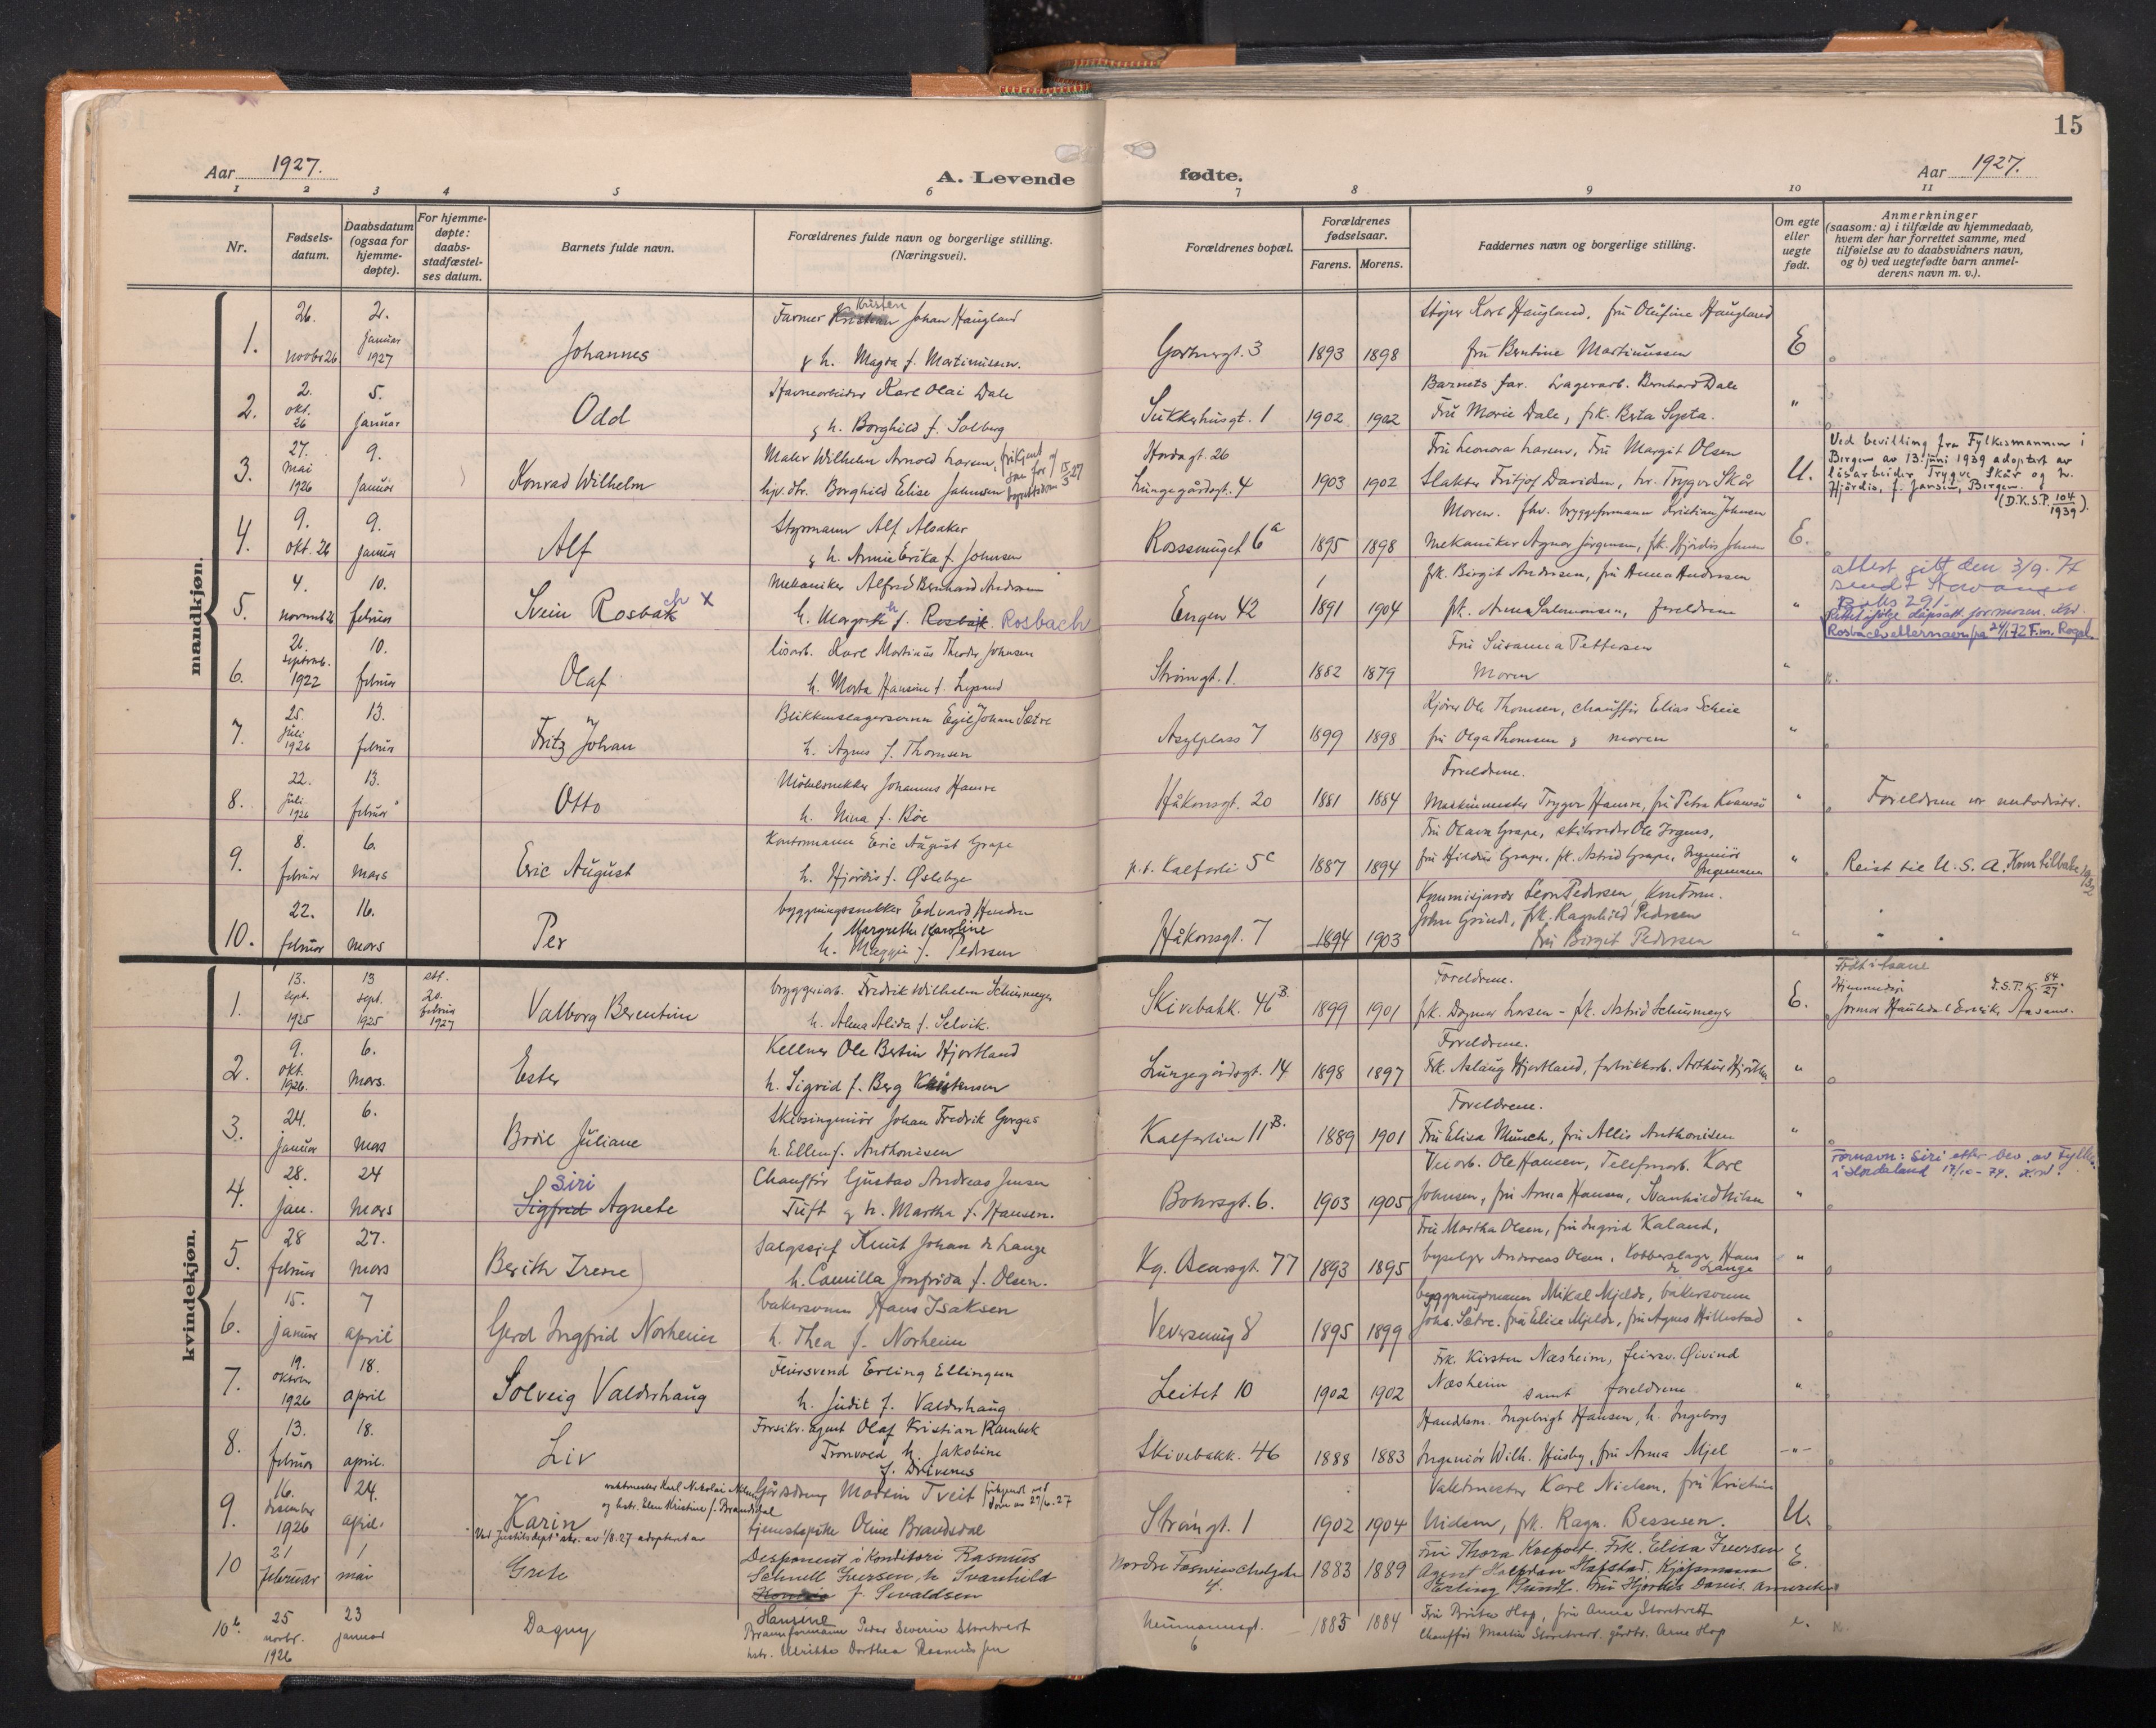 15
Aar 1927.
A. Levende fødte.
Aar 1927.
1 2 3 4 5 6 7 8 9 10 11
Nr.
Fødsels-
datum.
Daabsdatum
(ogsaa for
hjemme-
døpte).
For hjemme-
døpte:
daabs-
stadfæstel-
ses datum.
Barnets fulde navn.
Forældrenes fulde navn og borgerlige stilling.
(Næringsvei).
Forældrenes bopæl.
Forældrenes
fødselsaar.
Farens. Morens.
Faddernes navn og borgerlige stilling.
Om egte
eller
uegte
født.
Anmerkninger
(saasom: a) i tilfælde av hjemmedaab,
hvem der har forrettet samme, med
tilføielse av to daabsvidners navn,
og b) ved uegtefødte barn anmel-
derens navn m. v.).
mandkjøn.
1.
26.
novbr 26
2.
januar
1927
Johannes
Farmer Kristen Johan Haugland
& h. Magda f. Martinussen.
Gartnergt. 3
1893 1898
Støper Karl Haugland, fru Olufine Haugland
fru Bentine Martinussen
E
2.
2.
okt.
26
5.
januar
Odd
Havnearbeider Karl Olai Dale
& h. Borghild f. Solberg
Sukkerhusgt. 1
1902 1902
Barnets far. Lagerarb. Bernhard Dale
Fru Marie Dale, frk. Berta Systa.
"
3.
27.
mai
1926
9.
januar
Konrad Wilhelm
Maler Wilhelm Arnold Larsen, frikjent
hjv. dtr. Borghild Elise Johnsen
Hordagt. 26
Lungegårdsgt. 4
1903 1902
Fru Leonora Larsen, Fru Margit Olsen
Slakter Fritjof Davidsen, hr. Trygve Skår
U.
Ved bevilling fra Fylkesmannen i
Bergen av 13. juni 1939 adoptert av
løsarbeider Trygve Skår og h.
Hjørdis, f. Jansen, Bergen.
(D.K.S.P. 104/1939).
4.
9.
okt. 26
9.
januar
Alf
Styrmann Alf Alsaker
& h. Annie Erika f. Johnsen
Rosssmuget 6a
1895 1898
Moren. fhv. bryggeformann Kristian Johnsen
Mekaniker Agnar Jørgensen, frk. Hjørdis Johnsen
E.
5.
4.
novemb 26
10.
februar
Svein Rosbach x
Mekaniker Alfred Bernhard Andersen
h. Margrethe f. Rosbach
Engen 42
1891 1904
frk. Birgit Andersen, fru Anna Andersen
frk. Anna Salomonsen, foreldrene
"
attest gitt den 3/9. 74
sendt Stavanger
Rosbach etternavn fra 24/1 72 F.m. Rogal.
6.
26.
septemb.
1922
10.
februar
Olaf
løsarb. Karl Martinus Theodor Johnsen
h. Marta Hansine f. Lysand
Strømgt. 1.
1882 1879
Fru Susanna Pettersen
Moren
"
7.
25.
juli
1926
13.
februar
Fritz Johan
Blikkenslagersvenn Egil Johan Sætre
h. Agnes f. Thomsen
Asylplass 7
1899 1898
Kjører Ole Thomsen, chauffør Elias Scheie
fru Olga Thomsen & moren
"
8.
22.
juli
1926
13.
februar
Otto
Møbelsnekker Johannes Hamre
h. Nina f. Bøe
Håkonsgt. 20
1881 1884
Foreldrene.
Maskinmester Trygve Hamre, fru Petra
"
Foreldrene er metodister.
9.
8.
februar
6.
mars
Eric August
Kontormann Eric August Grape
h. Hjørdis f. Øslebye
p.t. Kalfarli 5c
1887 1894
Fru Olava Grape, skibsreder Ole Irgens,
fru Hildur Grape, frk. Astrid Grape, Ingeniør
"
Reist til U.S.A. Kom tilbake
10.
22.
februar
16.
mars
Per
byggningssnekker Edvard
Margrethe Karoline
h. Maggie f. Pedersen
Håkonsgt. 7
1894 1903
Kommisjonær Leon Pedersen, Kontorm.
John Grindt, frk. Ragnhild Pedersen
fru Birgit Pedersen
"
kvindekjøn.
1.
13.
sept.
1925
13
sept.
1925
stf.
20.
februar
1927
Valborg Berentine
bryggeriarb. Fredrik Wilhelm Schürmeyer
h. Alma Alida f. Selvik.
Skivebakk. 46B.
1899 1901
Foreldrene.
frk. Dagmar Larsen - frk. Astrid Schürmeyer
E.
Født i Åsane
Hjemmedøpt
2.
9.
okt.
1926.
6.
mars.
Ester
Kellner Ole Bertin Hjortland
h. Sigrid f. Berg Kristensen
Lungegårdsgt. 14
1898 1897
Foreldrene.
Frk. Aslaug Hjortland, fabrikkarb. Arthur Hjortland
"
3.
24.
januar
6.
mars
Bodil Juliane
Skibsingeniør Johan Fredrik Gorges
h. Ellen f. Anthonisen
Kalfarlien 11B.
1889 1901
Foreldrene.
Fru Elisa Munch, fru Allis Anthonisen
"
4.
28.
jan.
24
mars
Siri
Sigfrid Agnete
Chauffør Gustav Andreas Jensen
Tuft & h. Martha f. Hansen.
Bohrsgt. 6.
1903 1905
Veiarb. Ole Hansen, Telefonarb. Karl
Johnsen, fru Anna Hansen, Svanhild Nilsen
"
Fornavn: Siri etter bev. av Fylkesm.
i Hordaland 17/10-74.
5.
28
februar
27.
mars
Berith Irene
Salgssjef Knut Johan de Lange
h. Camilla Josefrida f. Olsen.
Kg. Oscarsgt. 77
1893 1895
Fru Martha Olsen, fru Ingrid Kaland,
byselger Andreas Olsen, Kobberslager Hans
de Lange
"
6.
15.
januar
7
april
Gerd Ingfrid Norheim
bakersvenn Hans Isaksen
h. Thea f. Norheim
Veversmug 8
1895 1899
byggningsmann Mikal Mjelde, bakersvenn
Johs. Sætre. fru Elise Mjelde, fru Agnes Hillestad
"
7.
19.
oktober
1926
18.
april
Solveig Valderhaug
Feiersvend Erling Ellingsen
h. Judit f. Valderhaug
Leitet 10
1902 1902
Frk. Kirsten Næsheim, feiersv. Øivind
Næsheim samt foreldrene
"
8.
13.
februar
18.
april.
Liv
Forsikr. agent Olaf Kristian Rambek
Tronvold h. Jakobine
f. Drivenes
Skivebakk. 46
1888 1883
Handlsm. Ingebrigt Hansen, h. Ingeborg
Ingeniør Wilh. Husby, fru Anna Mjel
-"-
9.
16.
desember
1926
24.
april.
vaktmester Karl Nikolai Nilsen
og hstr. Elen Kristine f. Brandsdal
Karin
Ved Justitsdept. skr. av 1/8.27 adopteret av
Gårdsdreng Martin Tveit frikjent ved
dom av 29/6.27
tjenestepike Oline Brandsdal
Strømgt. 1
1902 1904
Vaktmester Karl Nielsen, fru Kristine
Nielsen, frk. Ragn. Bessesen.
U.
10
21
februar
1
mai
Grete
Disponent i Konditori Rasmus
Schnell Iversen, h. Svanhild
f. Sivaldsen
4.
1883 1889
Fru Thora Frk. Elisa Iversen
Agent Halfdan Hafstad. Kjøpmann
Erling Fru Hjørdis Davis. Amerika
E.
10b.
25
novbr.
1926
23
januar
Dagny
Hansine
Brannformann Peder Severin Storetvert
hstr. Ulrikke Dorthea Rasmus
Neumannsgt.
6
1885 1884
Fru Brita Hop, fru Anna Storetvedt
Chauffør Martin Storetvert. gårdbr. Arne Hop
e.